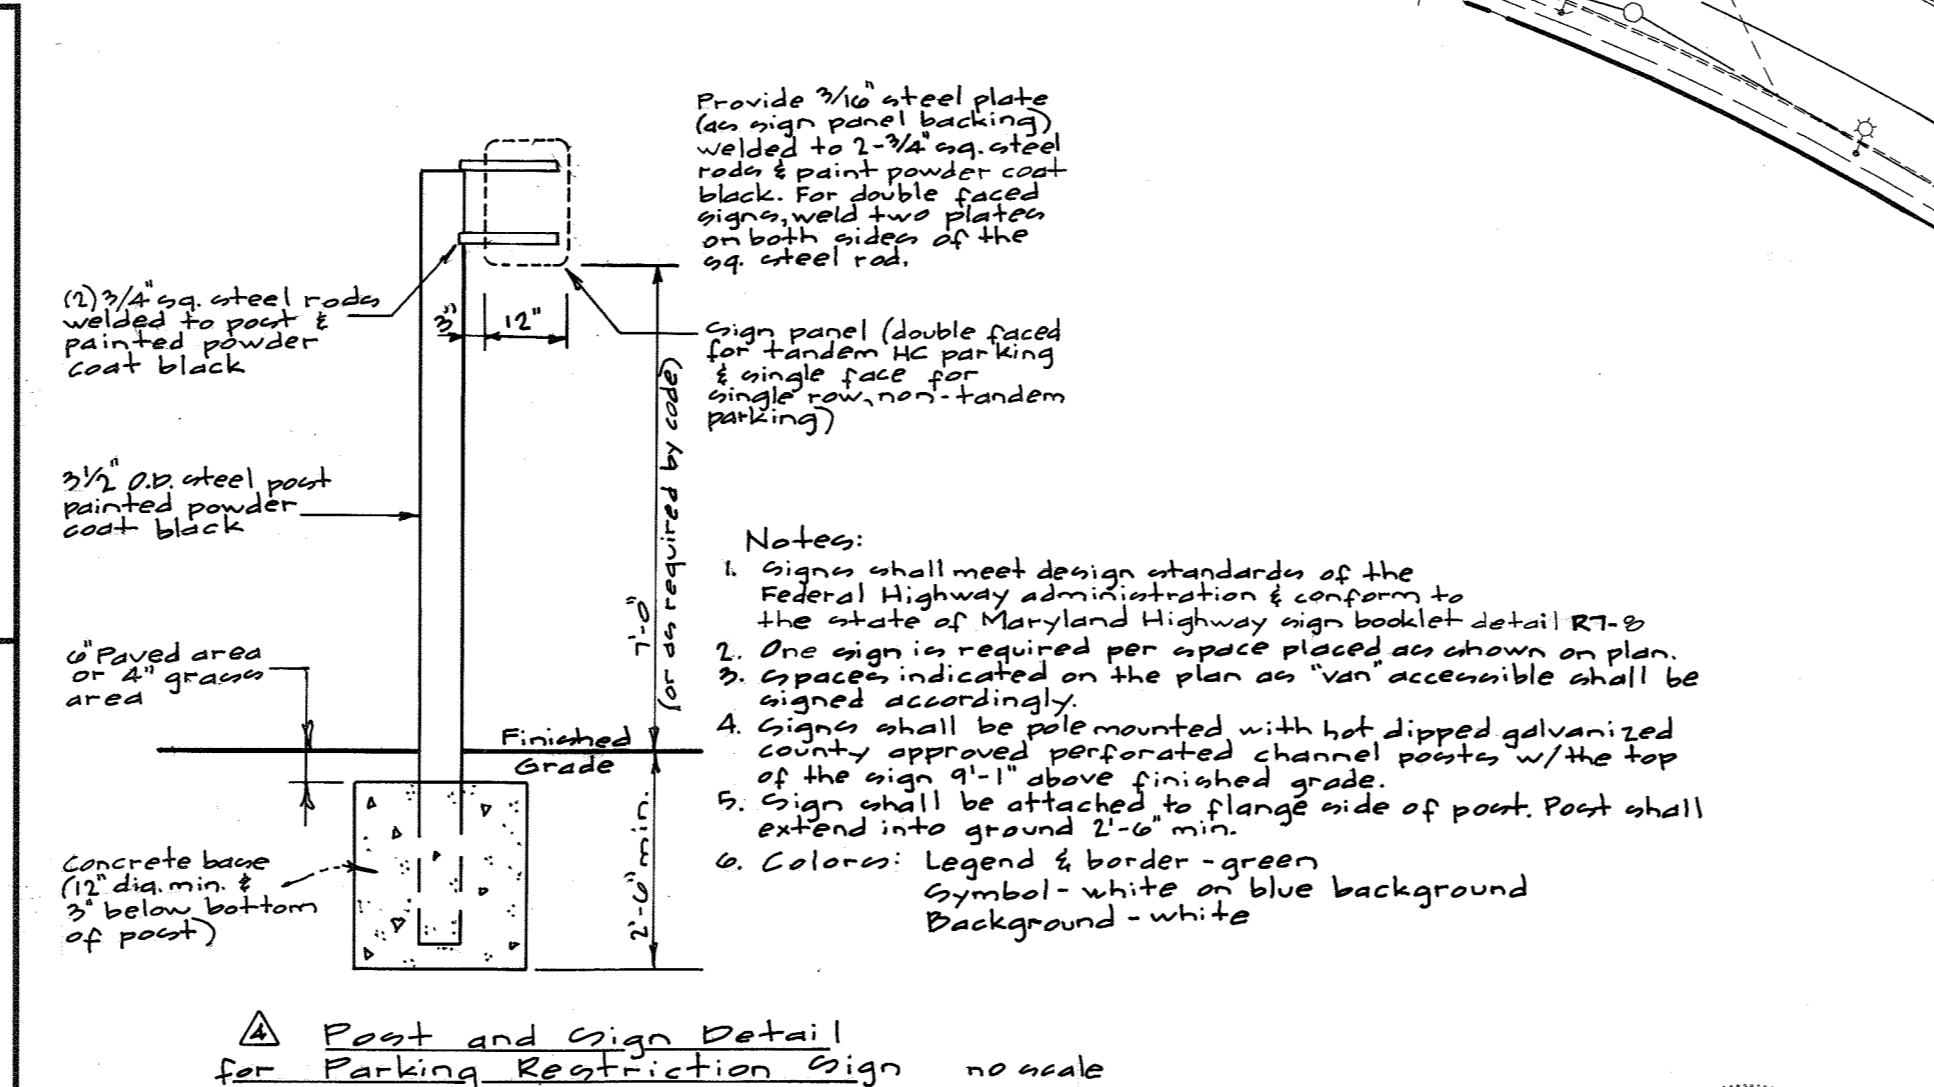 Provide 3/16" steel plate
(as sign panel backing)
welded to 2-3/4" sq. steel
rods & paint powder coat
black. For double faced
signs, weld two plates
on both sides of the
sq. steel rod.
(2) 3/4" sq. steel rods
welded to post &
painted powder
coat black
3"
12"
Sign panel (double faced
for tandem HC parking
& single face for
single row, non-tandem
parking)
3 1/2" O.D. steel post
painted powder
coat black
7'-0"
(or as required by code)
6" Paved area
or 4" grass
area
Finished
Grade
Concrete base
(12" dia. min. &
3" below bottom
of post)
2'-6" min.
Notes:
1. Signs shall meet design standards of the
Federal Highway administration & conform to
the state of Maryland Highway sign booklet detail R7-8
2. One sign is required per space placed as shown on plan.
3. Spaces indicated on the plan as "van" accessible shall be
signed accordingly.
4. Signs shall be pole mounted with hot dipped galvanized
county approved perforated channel posts w/the top
of the sign 9'-1" above finished grade.
5. Sign shall be attached to flange side of post. Post shall
extend into ground 2'-6" min.
6. Colors: Legend & border - green
Symbol - white on blue background
Background - white
4 Post and Sign Detail
for Parking Restriction Sign no scale